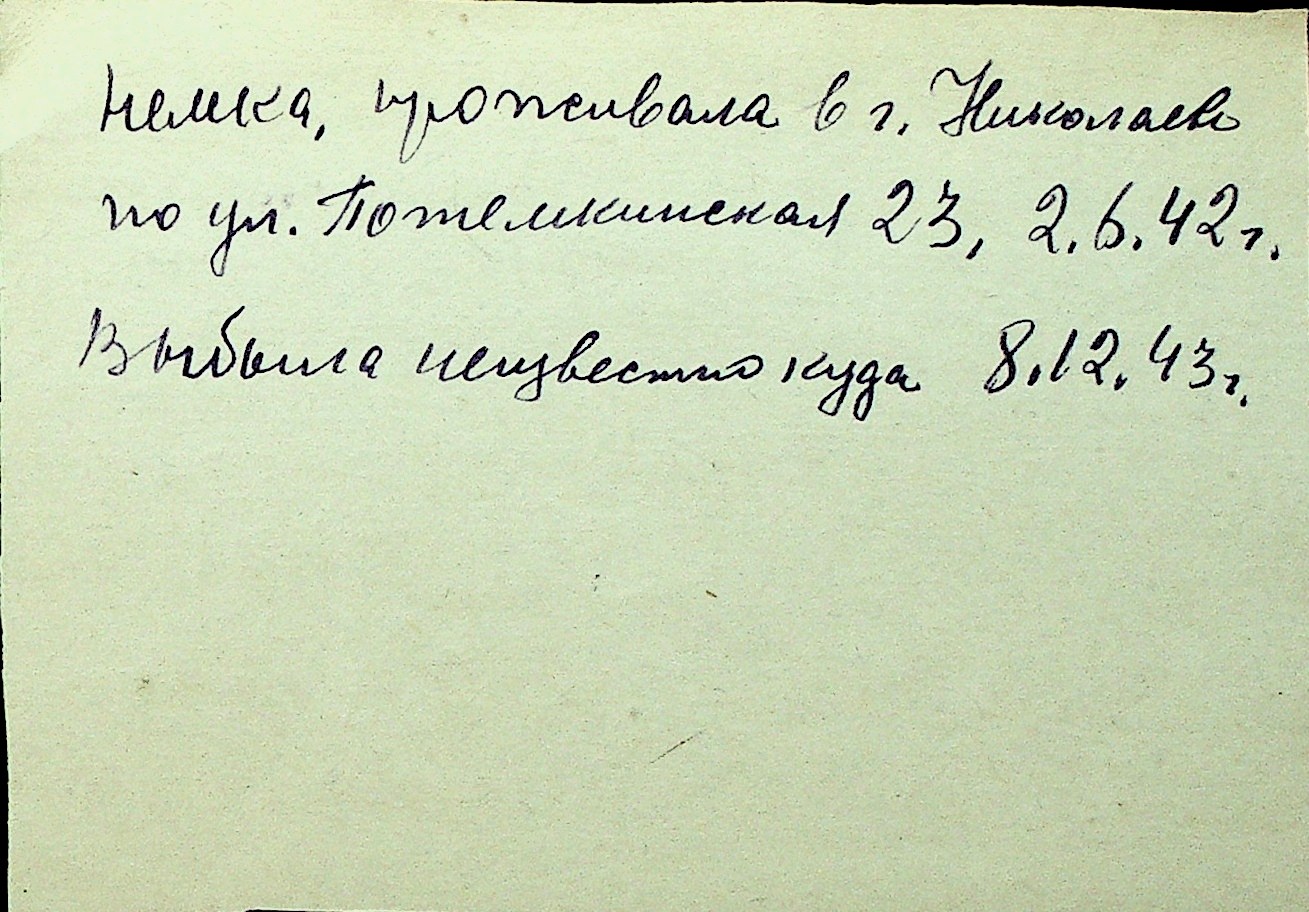 Немка, проживала в г. Николаев
по ул. Потемкинская 23, 2.6.42г.
Выбыла неизвестно куда 8.12.43г.